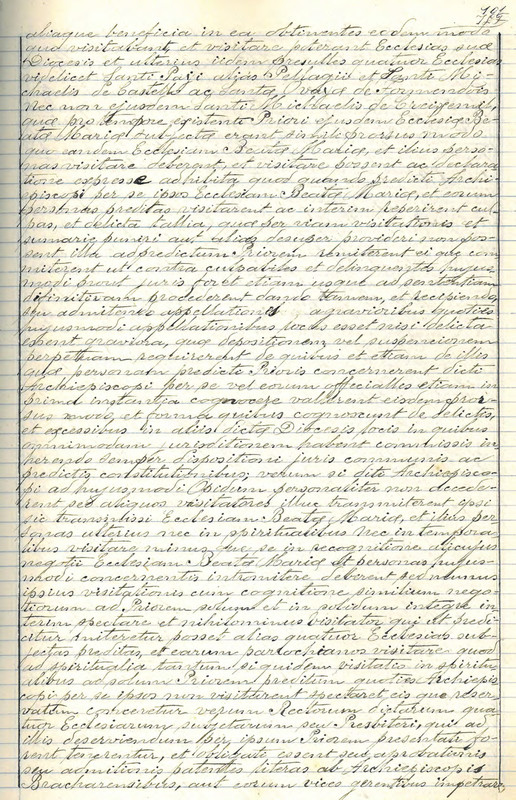 101
aliaque beneficia in ea obtinentes eodem modo
quo visitabant, et visitare poterant Ecclesias suæ
Diocesis et ulterius iidem Presules quatuor Ecclesias
videlicet Santi Paiji alias Pellagii et Santi Mi-
chaelis de Castello ac Santa Maria de
nec non ejusdem Santi Michaelis de Creixemil,
quæ pro tempore existente Priori ejusdem Ecclesiæ Be-
atæ Mariæ subjectæ erant simili prorsus modo
quo eandem Ecclesiam Beatæ Mariæ, et illius perso-
nas visitare deberent, et visitare possent ac declara-
tione expresse adhibita quod quando predicti Archi-
episcopi per se ipsos Ecclesiam Beatæ Mariæ, et eorum
personas preditas visitarent ac interim reperirent cul-
pas, et delicta tallia, quæ per viam visitationis et
sumarie puniri aut alias desuper provideri non pos-
sent illa ad predictum Priorem remiterent si que com-
miterent ut contra culpabiles et delinquentes hujus-
modi prout juris foret etiam usque ad sententiam
difinitivam procederent dando tamen, et recipiendo
seu admitendo appellationes a gravioribus quoties
hujusmodi appellationibus locus esset nisi delicta
essent graviora, quæ depositionem vel suspencionem
perpetuam requirerent de quibus et etiam de illis
quæ personam predicti Prioris concernerent dicti
Archiepiscopi per se vel eorum officialles etiam in
prima instantia cognoscere valerent eisdem pror-
sus modo, et forma quibus cognoscunt de delictis,
et excessibus in aliis dictæ Diocesis locis in quibus
omnimodam jurisditionem habent comissis in-
herendo semper dispositioni juris communis ac
predictis constitutionibus; verum si diti Archiepisco-
pi ad hujusmodi Opidum personaliter non accede-
rent sed aliquos visitatores illuc transmiterent ipsi
sic transmissi Ecclesiam Beatæ Mariæ, et illius per-
sonas ulterius nec in spiritualibus nec in tempora-
libus visitare minus que, se in recognitione alicujus
negotii Ecclesiam Beatæ Mariæ et personas hujus-
modi concernentis intromitere deberent sed munus
ipsius visitationis cum cognitione similium nego-
tiorum ad Priorem solum et in solidum integre in-
terim spectare et nihilominus visitator qui ut predi-
citur miteretur posset alias quatuor Ecclesias sub-
jectas preditas, et earum parrochianos visitare quod
ad spiritualia tantum si quidem visitatis in spiritu-
alibus ad solum Priorem preditum quoties Archiepis-
copi per se ipsos non visitarent spectaret, eis que reser-
vatum conceretur verum Rectorum dictarum qua-
tuor Ecclesiarum, subjectarum seu Presbiteri, qui ad
illis deserviendum per ipsum Priorem presentati fo-
rent tenerentur, et obligati essent seu aprobationis
seu admitionis patentes literas ab Archiepiscopis
Bracharensibus, aut eorum vices gerentibus impetrare